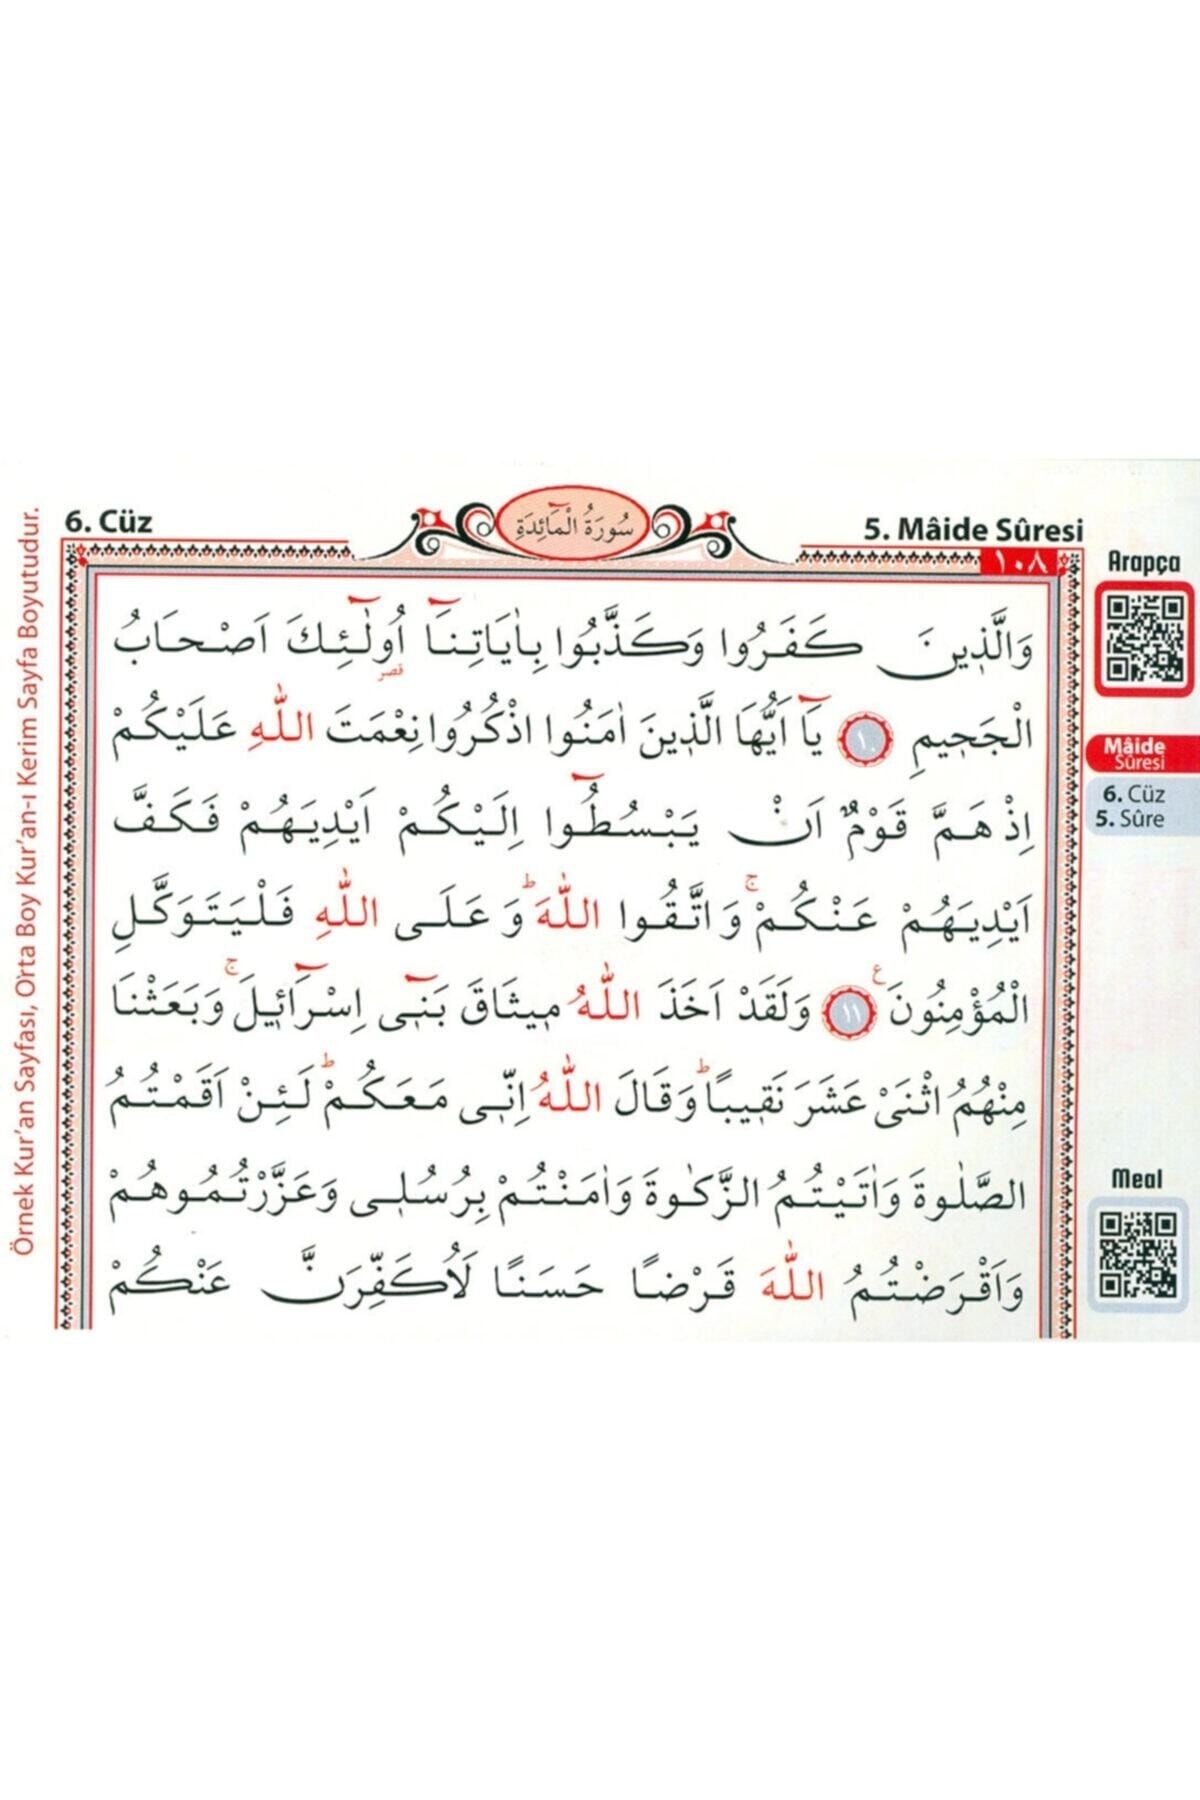 6. Cüz
سُورَةُ الْمَٓائِدَةِ
5. Mâide Sûresi
١٠٨
Arapça
Mâide
Sûresi
6. Cüz
5. Sûre
Meal
Örnek Kur'an Sayfası, Orta Boy Kur'an-ı Kerim Sayfa Boyutudur.
وَالَّذ۪ينَ كَفَرُوا وَكَذَّبُوا بِاٰيَاتِنَٓا اُو۬لٰٓئِكَ اَصْحَابُ
قصر
الْجَح۪يمِ ﴿١٠﴾ يَٓا اَيُّهَا الَّذ۪ينَ اٰمَنُوا اذْكُرُوا نِعْمَتَ اللّٰهِ عَلَيْكُمْ
اِذْ هَمَّ قَوْمٌ اَنْ يَبْسُطُٓوا اِلَيْكُمْ اَيْدِيَهُمْ فَكَفَّ
اَيْدِيَهُمْ عَنْكُمْۚ وَاتَّقُوا اللّٰهَۜ وَعَلَى اللّٰهِ فَلْيَتَوَكَّلِ
الْمُؤْمِنُونَ۟ ﴿١١﴾ وَلَقَدْ اَخَذَ اللّٰهُ م۪يثَاقَ بَن۪ٓي اِسْرَٓائ۪يلَۚ وَبَعَثْنَا
مِنْهُمُ اثْنَيْ عَشَرَ نَق۪يبًاۜ وَقَالَ اللّٰهُ اِنّ۪ي مَعَكُمْۜ لَئِنْ اَقَمْتُمُ
الصَّلٰوةَ وَاٰتَيْتُمُ الزَّكٰوةَ وَاٰمَنْتُمْ بِرُسُل۪ي وَعَزَّرْتُمُوهُمْ
وَاَقْرَضْتُمُ اللّٰهَ قَرْضًا حَسَنًا لَاُكَفِّرَنَّ عَنْكُمْ